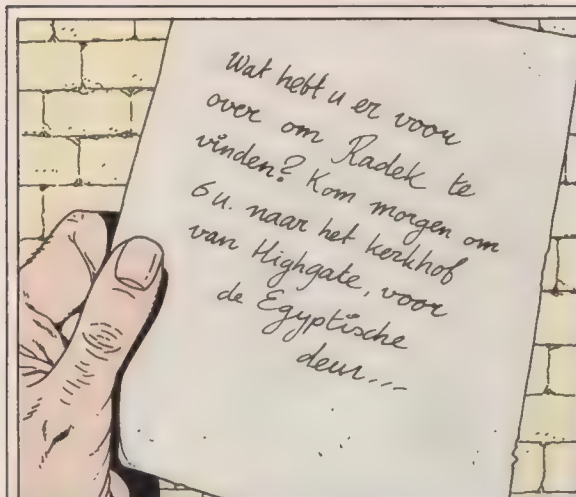 Wat hebt u er voor
over om Radek te
vinden? Kom morgen om
6 u. naar het kerkhof
van Highgate, voor
de Egyptische
deur...